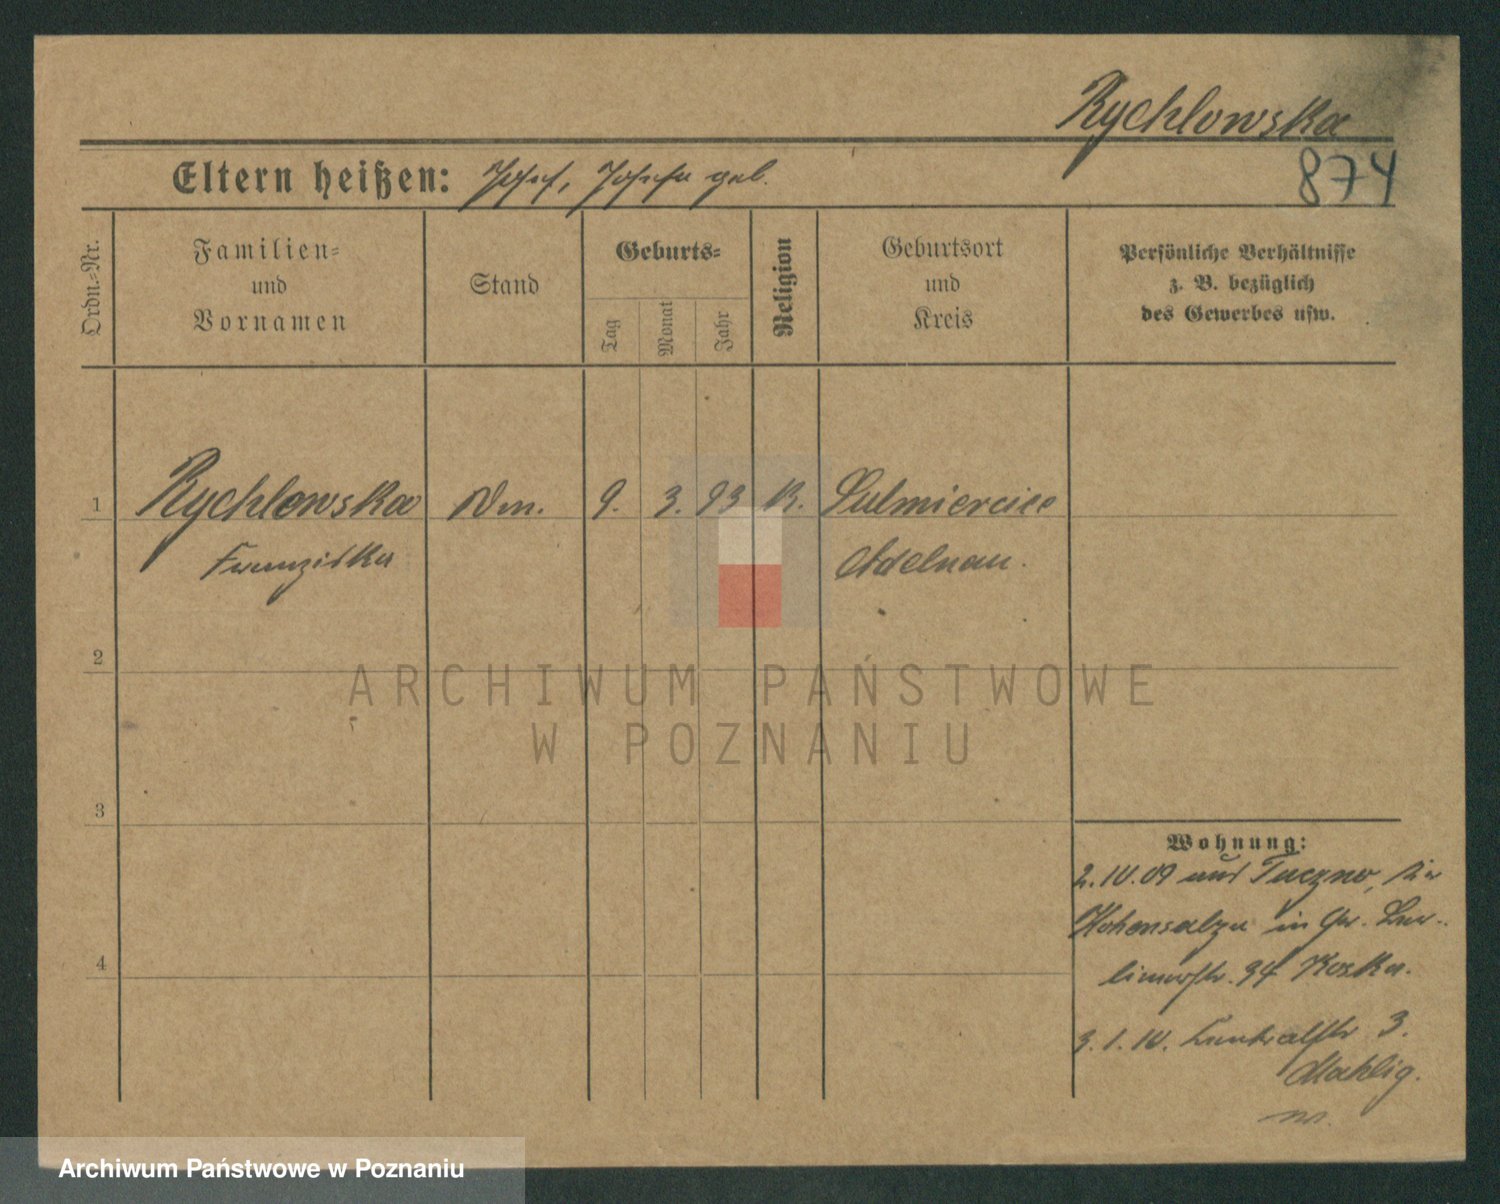 Rychlowska
874
Eltern heißen: Josef, Josefa geb.
Ordn.=Nr.
Familien=
und
Vornamen
Stand
Geburts=
Tag
Monat
Jahr
Religion
Geburtsort
und
Kreis
Persönliche Verhältnisse
z. B. bezüglich
des Gewerbes usw.
1 Rychlowska 9. 3. 93 K. Sulmierciee
Franziska Adelnau.
2
3
4
Wohnung:
2. 10. 09 aus Tuczno, Kr
Hohensalza in Gr. Ber-
linerstr. 94 Koska.
3. 1. 10. 3.
Mahlig.
ARCHIWUM PAŃSTWOWE
W POZNANIU
Archiwum Państwowe w Poznaniu